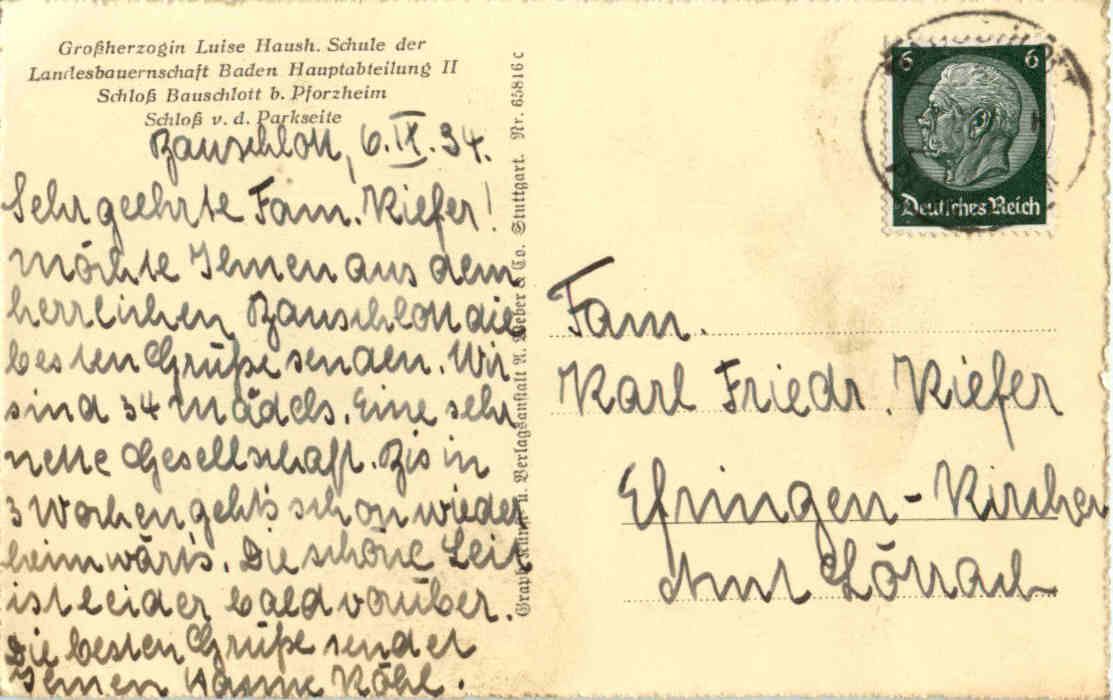 Großherzogin Luise Haush. Schule der
Landesbauernschaft Baden Hauptabteilung II
Schloß Bauschlott b. Pforzheim
Schloß v. d. Parkseite
Bauschlott, 6.IX.34.
Sehr geehrte Fam. Kiefer!
möchte Ihnen aus dem
herrlichen Bauschlott die
besten Grüße senden. Wir
sind 34 Mädels. Eine sehr
nette Gesellschaft. Bis in
3 Wochen geht's schon wieder
heimwärts. Die schöne Zeit
ist leider bald vorüber.
Die besten Grüße sendet
Ihnen Köhl.
Graph. Kunst- u. Verlagsanstalt A. Weber & Co. Stuttgart. Nr. 65816 c
6 6
Deutsches Reich
Fam.
Karl Friedr. Kiefer
Efringen-Kirchen
Amt Lörrach